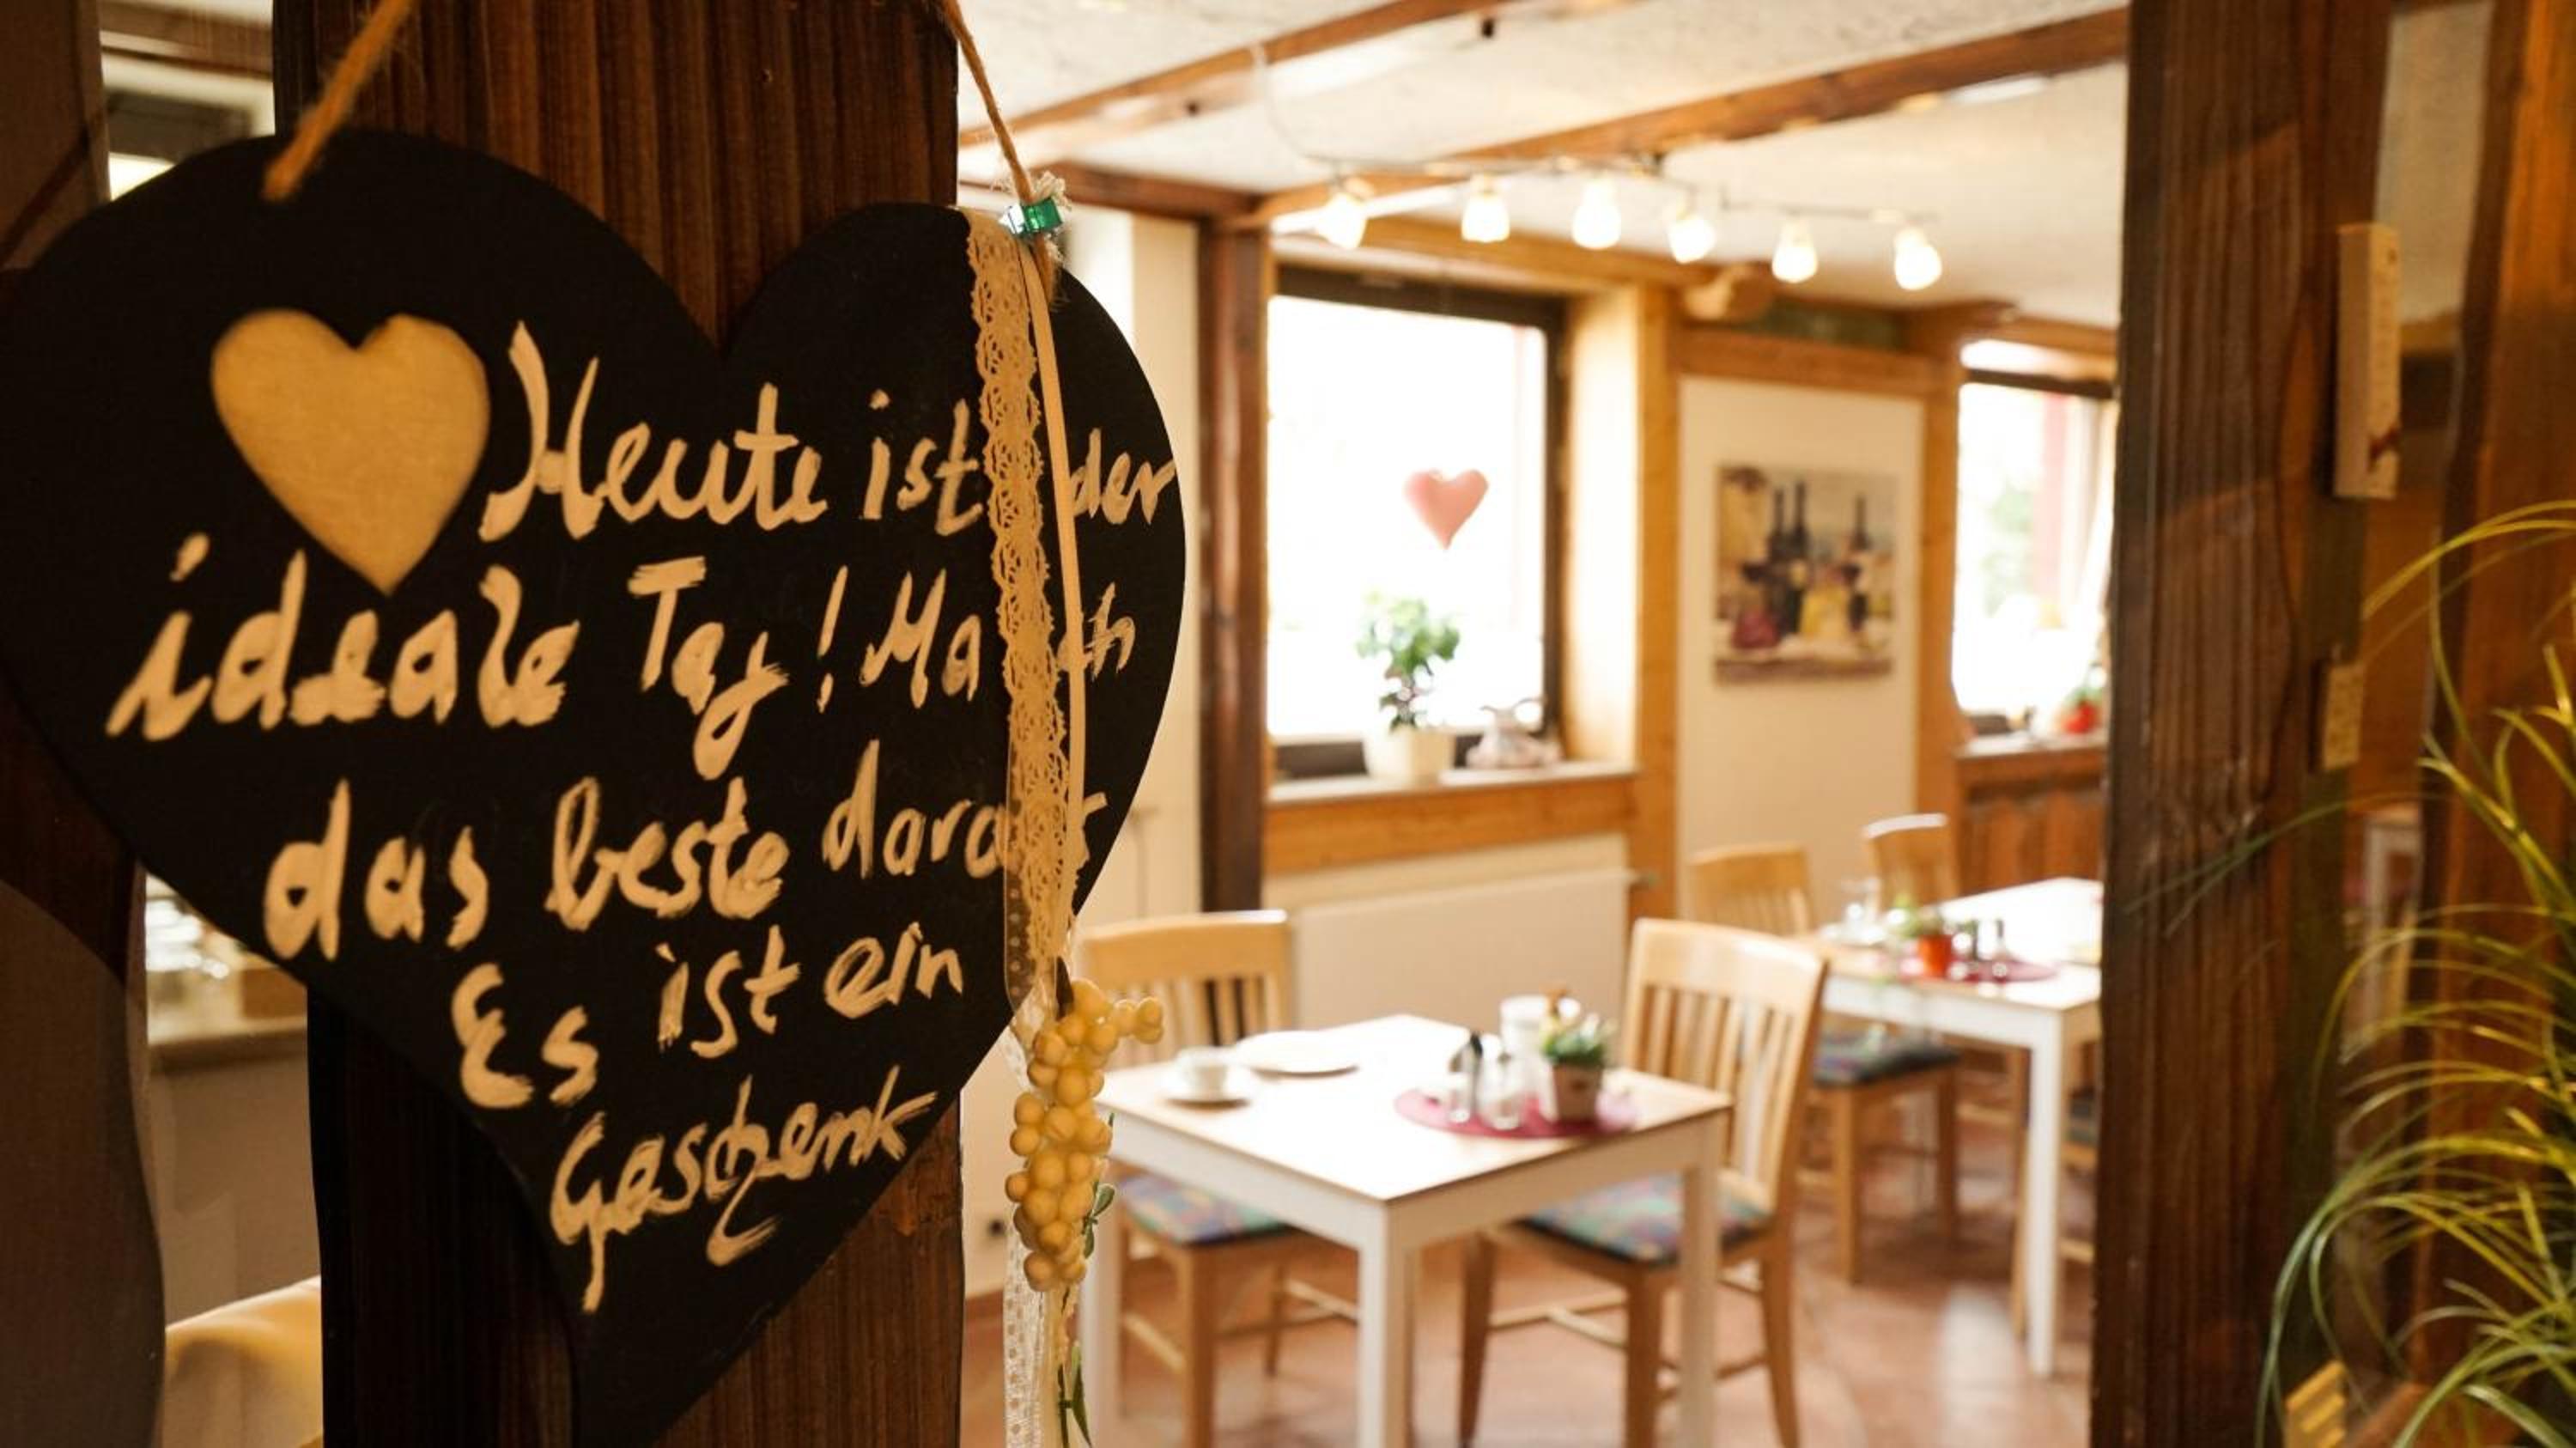 Heute ist der
ideale Tag! Mach
das beste daraus
Es ist ein
Geschenk